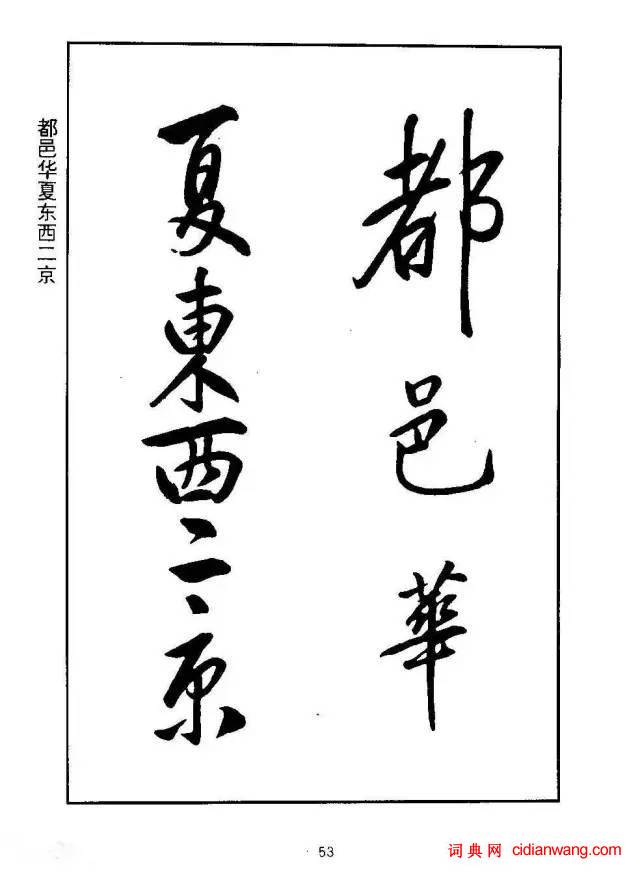 都邑華
夏東西二京
都邑华夏东西二京
53
词典网 cidianwang.com